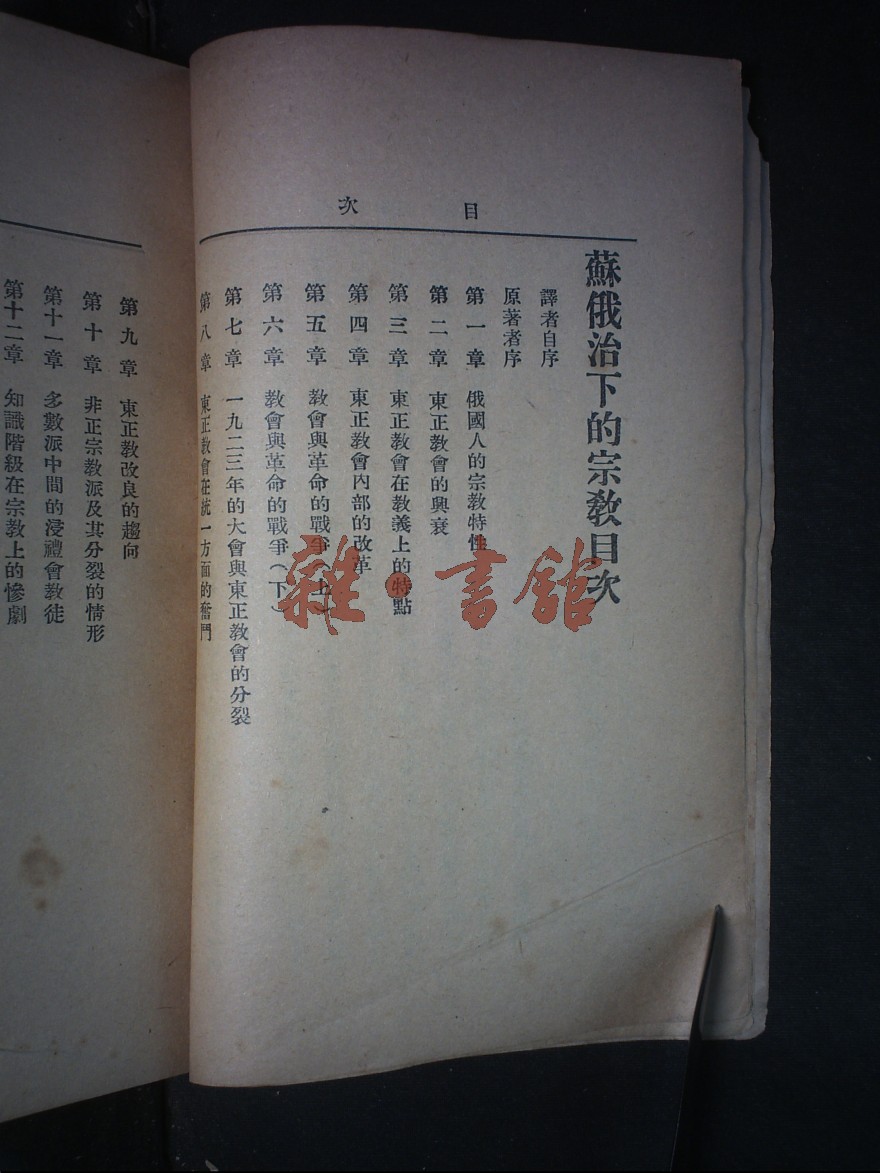 目次
蘇俄治下的宗教目次
譯者自序
原著者序
第一章 俄國人的宗教特性
第二章 東正教會的興衰
第三章 東正教會在教義上的特點
第四章 東正教會內部的改革
第五章 教會與革命的戰爭(上)
第六章 教會與革命的戰爭(下)
第七章 一九二三年的大會與東正教會的分裂
第八章 東正教會在統一方面的奮鬥
第九章 東正教改良的趨向
第十章 非正宗教派及其分裂的情形
第十一章 多數派中間的浸禮會教徒
第十二章 知識階級在宗教上的慘劇
雜·書館